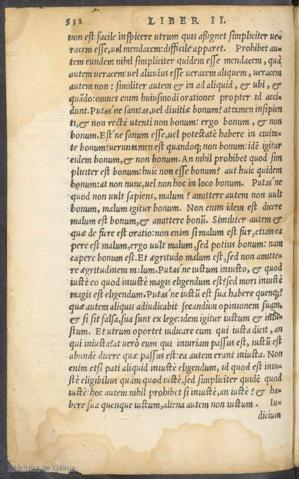 532 LIBER II.
non est facile inspicere utrum quis assignet simpliciter ve
racem esse, vel mendacem: difficile apparet. Prohibet au-
tem eundem nihil simpliciter quidem esse mendacem, quã
autem veracem: vel alicuius esse veracem aliquem, veracem
autem non: similiter autem & in ad aliquid, & ubi, &
quãdo: omnes enim huiusmodi orationes propter id acci
dunt. Putas'ne sanitas, vel divitiæ bonum? at tamen insipien
ti, & non rectè utenti non bonum: ergo bonum, & non
bonum. Est'ne sanum esse, vel potestatẽ habere in civita-
te bonum? verumtamen est quandoq; non bonum: idẽ igitur
eidem bonum, & non bonum. An nihil prohibet quod sim
pliciter est bonum: huic non esse bonum? aut huic quidem
bonum: at non nunc, vel non hoc in loco bonum. Putas'ne
quod non vult sapiens, malum? amittere autem non vult
bonum, malum igitur bonum. Non enim idem est dicere
malum est bonum, & amittere bonũ. Similiter autem &
quæ de fure est oratio: non enim si malum est fur, etiam ca
pere est malum, ergo vult malum, sed potius bonum: nam
capere bonum est. Et ægritudo malum est, sed non amitte-
re ægritudinem malum. Putas'ne iustum iniusto, & quod
iustè eo quod iniustè magis eligendum est? sed mori iniustè
magis est eligendum. Putas'ne iustũ est sua habere quenq;?
quæ autem aliquis adiudicabit secundum opinionem suam,
& si sit falsa, sua sunt ex lege: idem igitur iustum & iniu-
stum. Et utrum oportet iudicare eum qui iusta dicit, an
qui iniusta? at verò eum qui iniuriam passus est, iustũ est
abundè dicere quæ passus est: ea autem erant iniusta. Non
enim etsi pati aliquid iniustè eligendum, id quod est iniu-
stè eligibilius quàm quod iustè, sed simpliciter quidẽ quod
iustè: hoc autem nihil prohibet si iniustè, an iustè? & ha-
bere sua quenque iustum, aliena autem non iustum. Iu-
dicium
Biblioteca de Galicia